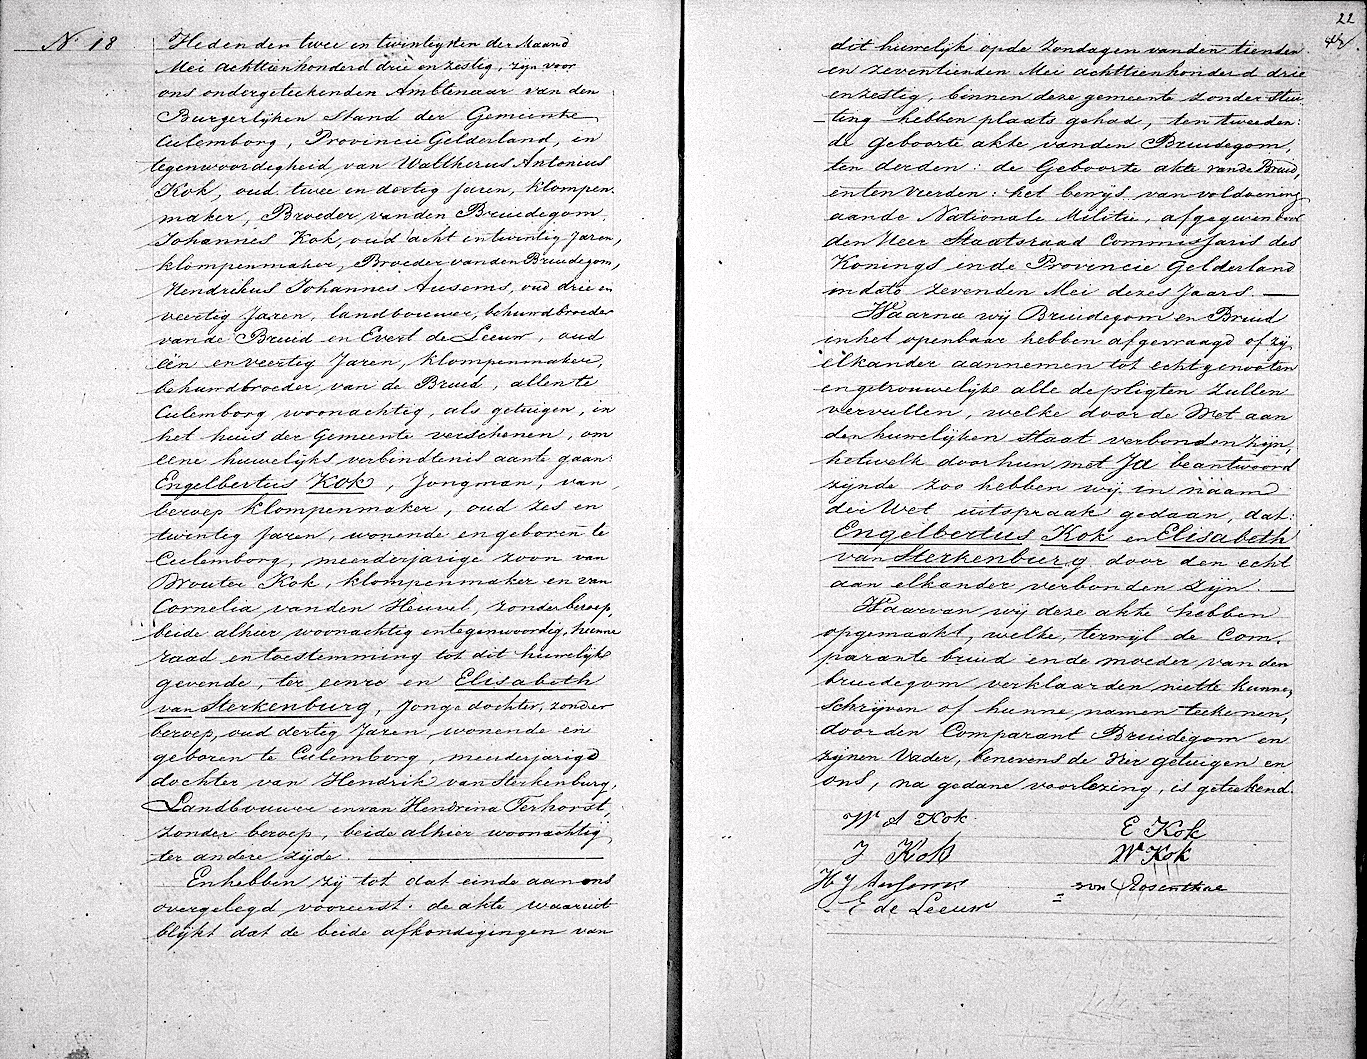 N. 18
Heden den twee en twintigsten der Maand
Mei achttienhonderd drie en zestig, zijn voor
ons ondergeteekenden Ambtenaar van den
Burgerlijken Stand der Gemeente
Culemborg, Provincie Gelderland, in
tegenwoordigheid van Waltherus Antonius
Kok, oud twee en dertig Jaren, klompen
maker, Broeder van den Bruidegom,
Johannes Kok, oud acht en twintig Jaren,
klompenmaker, Broeder van den Bruidegom,
Hendrikus Johannes Ausems, oud drie en
veertig Jaren, landbouwer, behuwdbroeder
van de Bruid en Evert de Leeuw, oud
één en veertig Jaren, klompenmaker,
behuwdbroeder van de Bruid, allen te
Culemborg woonachtig, als getuigen, in
het huis der Gemeente verschenen, om
eene huwelijks verbindtenis aan te gaan:
Engelbertus Kok, Jongman, van
beroep klompenmaker, oud zes en
twintig Jaren, wonende en geboren te
Culemborg, meerderjarige zoon van
Wouter Kok, klompenmaker en van
Cornelia van den Heuvel, zonder beroep,
beide alhier woonachtig en tegenwoordig, hunne
raad en toestemming tot dit huwelijk
gevende, ter eenre en Elisabeth
van Sterkenburg, Jonge dochter, zonder
beroep, oud dertig Jaren, wonende en
geboren te Culemborg, meerderjarige
dochter van Hendrik van Sterkenburg,
Landbouwer en van Hendrina Terhorst,
zonder beroep, beide alhier woonachtig
ter andere zijde.
En hebben zij tot dat einde aan ons
overgelegd vooreerst: de akte waaruit
blijkt dat de beide afkondigingen van
22
dit huwelijk op de Zondagen van den tienden
en zeventienden Mei achttienhonderd drie
en zestig, binnen deze gemeente zonder stui
ting hebben plaats gehad, ten tweeden:
de Geboorte akte van den Bruidegom,
ten derden: de Geboorte akte van de Bruid,
en ten vierden: het bewijs van voldoening
aan de Nationale Militie, afgegeven door
den Heer Staatsraad Commissaris des
Konings in de Provincie Gelderland
in dato zevenden Mei dezes Jaars.
Waarna wij Bruidegom en Bruid
in het openbaar hebben afgevraagd of zij
elkander aannemen tot echtgenooten
en getrouwelijk alle de pligten zullen
vervullen, welke door de Wet aan
den huwelijken Staat verbonden zijn,
hetwelk door hun met Ja beantwoord
zijnde zoo hebben wij in naam
der Wet uitspraak gedaan, dat:
Engelbertus Kok en Elisabeth
van Sterkenburg door den echt
aan elkander verbonden zijn.
Waarvan wij deze akte hebben
opgemaakt, welke, terwijl de Com
parante bruid en de moeder van den
bruidegom verklaarden niet te kunnen
schrijven of hunne namen teekenen,
door den Comparant Bruidegom en
zijnen Vader, benevens de vier getuigen en
ons, na gedane voorlezing, is geteekend.
W A Kok
E Kok
J Kok
W Kok
H J Ausems
von Rosenthal
E de Leeuw